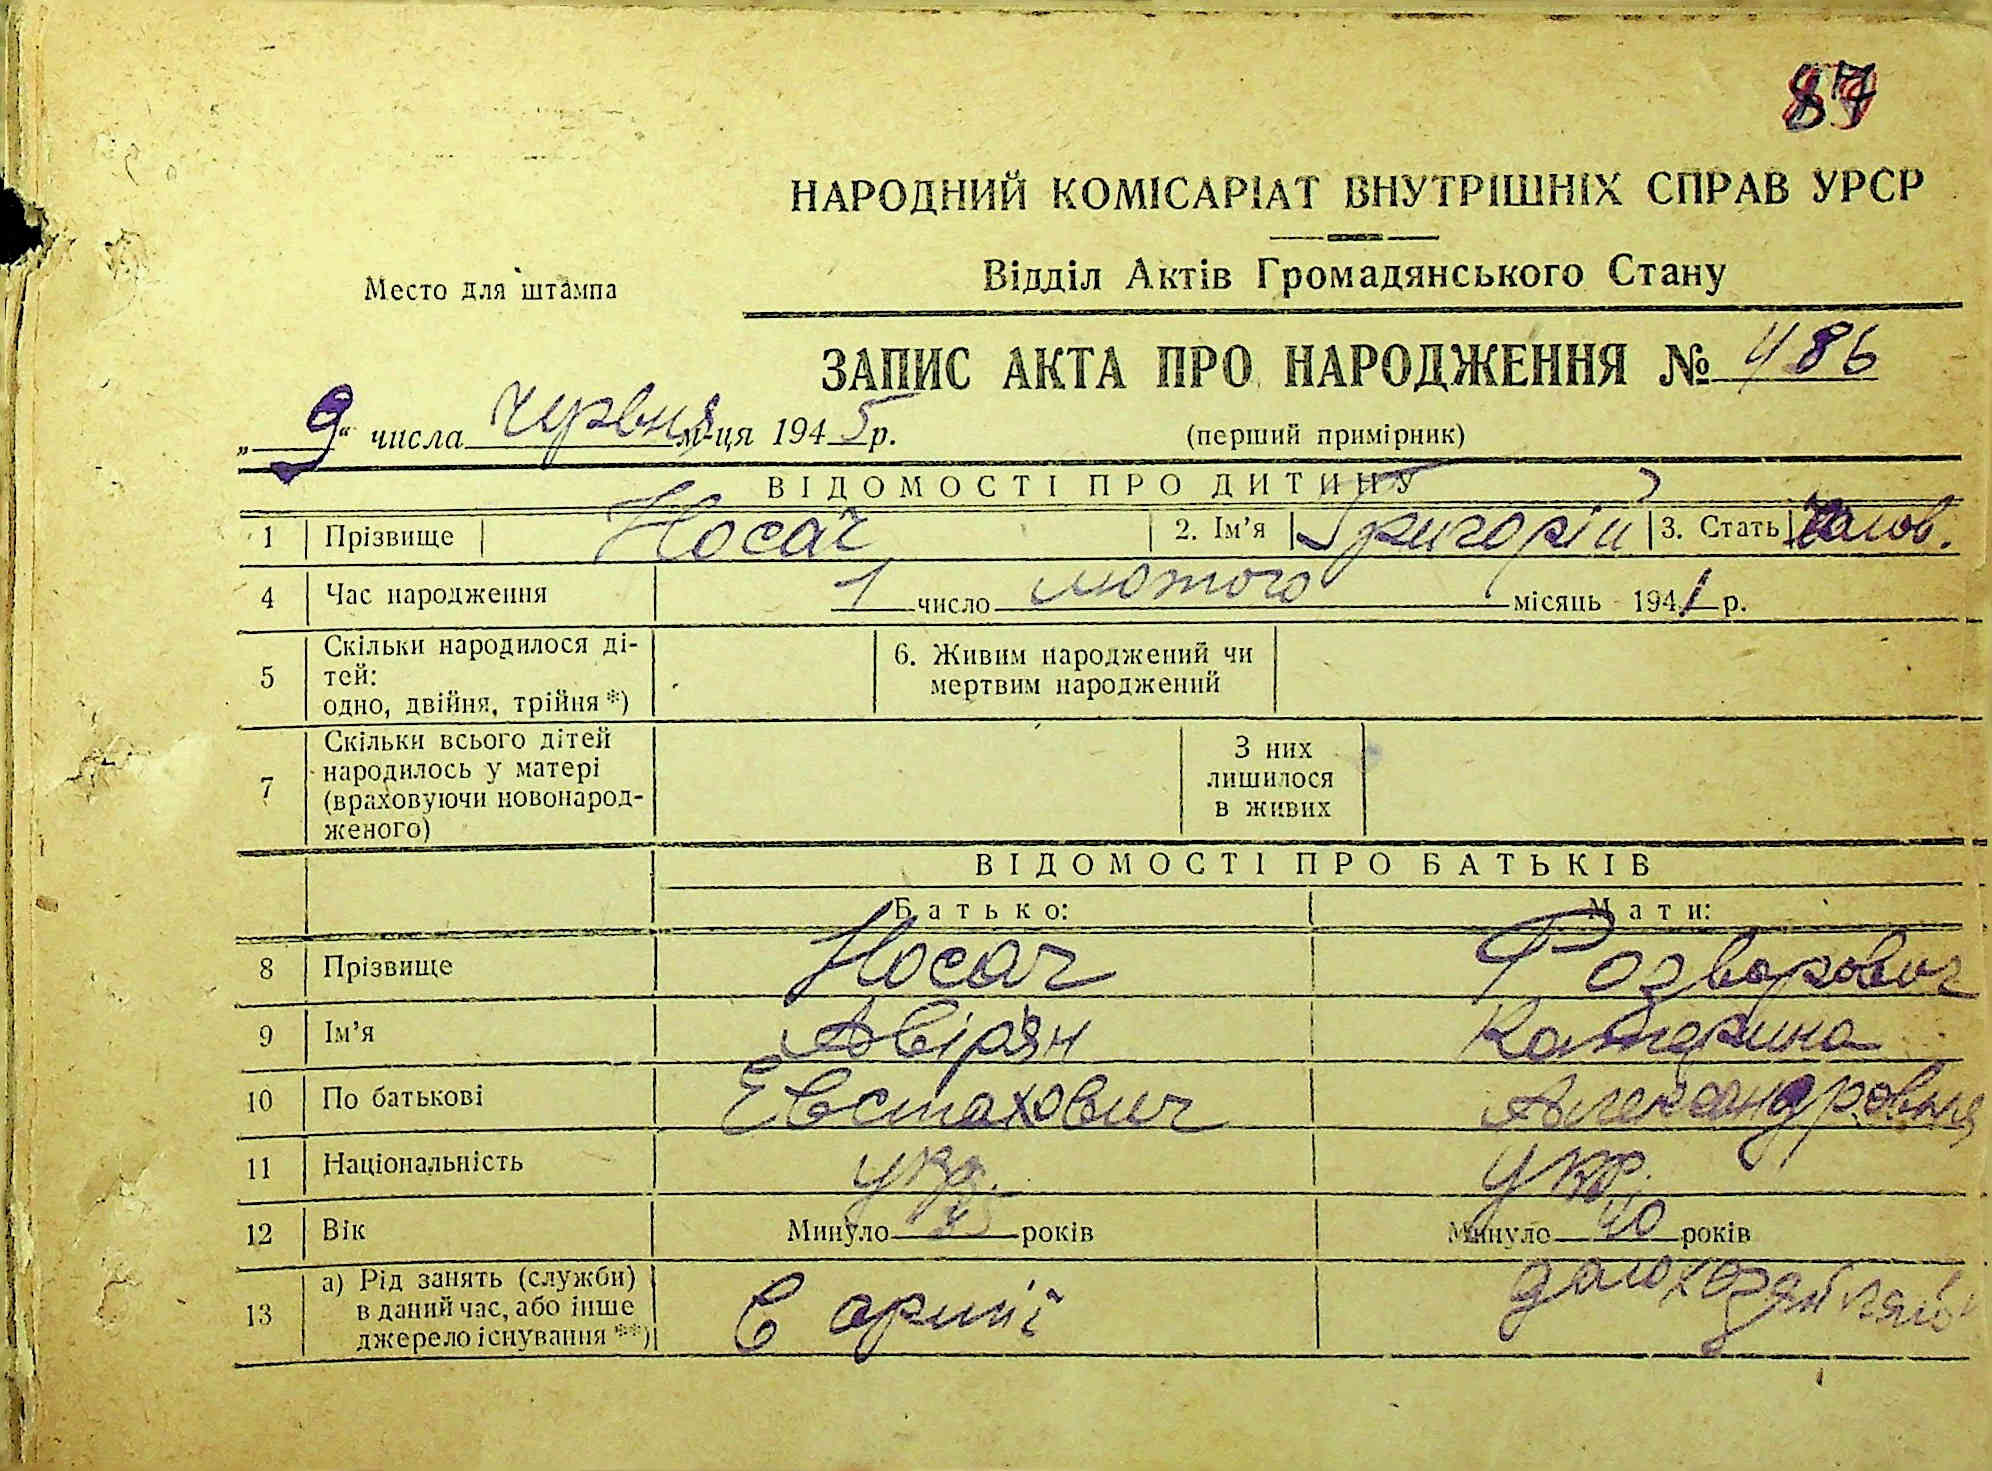 87
НАРОДНИЙ КОМІСАРІАТ ВНУТРІШНІХ СПРАВ УРСР
Место для штампа
Відділ Актів Громадянського Стану
ЗАПИС АКТА ПРО НАРОДЖЕННЯ № 486
„9“ числа червня м-ця 1945 р.
(перший примірник)
ВІДОМОСТІ ПРО ДИТИНУ
1 Прізвище Носач 2. Ім’я Григорій 3. Стать Чолов.
4 Час народження 1 число лютого місяць 1941 р.
5 Скільки народилося ді-
тей:
одно, двійня, трійня*)
6. Живим народжений чи
мертвим народжений
7 Скільки всього дітей
народилось у матері
(враховуючи новонарод-
женого)
З них
лишилося
в живих
ВІДОМОСТІ ПРО БАТЬКІВ
Батько: Мати:
8 Прізвище Носач Розворович
9 Ім’я Авір'ян Катерина
10 По батькові Евстахович Александровня
11 Національність укр. укр.
12 Вік Минуло років Минуло 40 років
13 а) Рід занять (служби)
в даний час, або інше
джерело існування**)
в армії